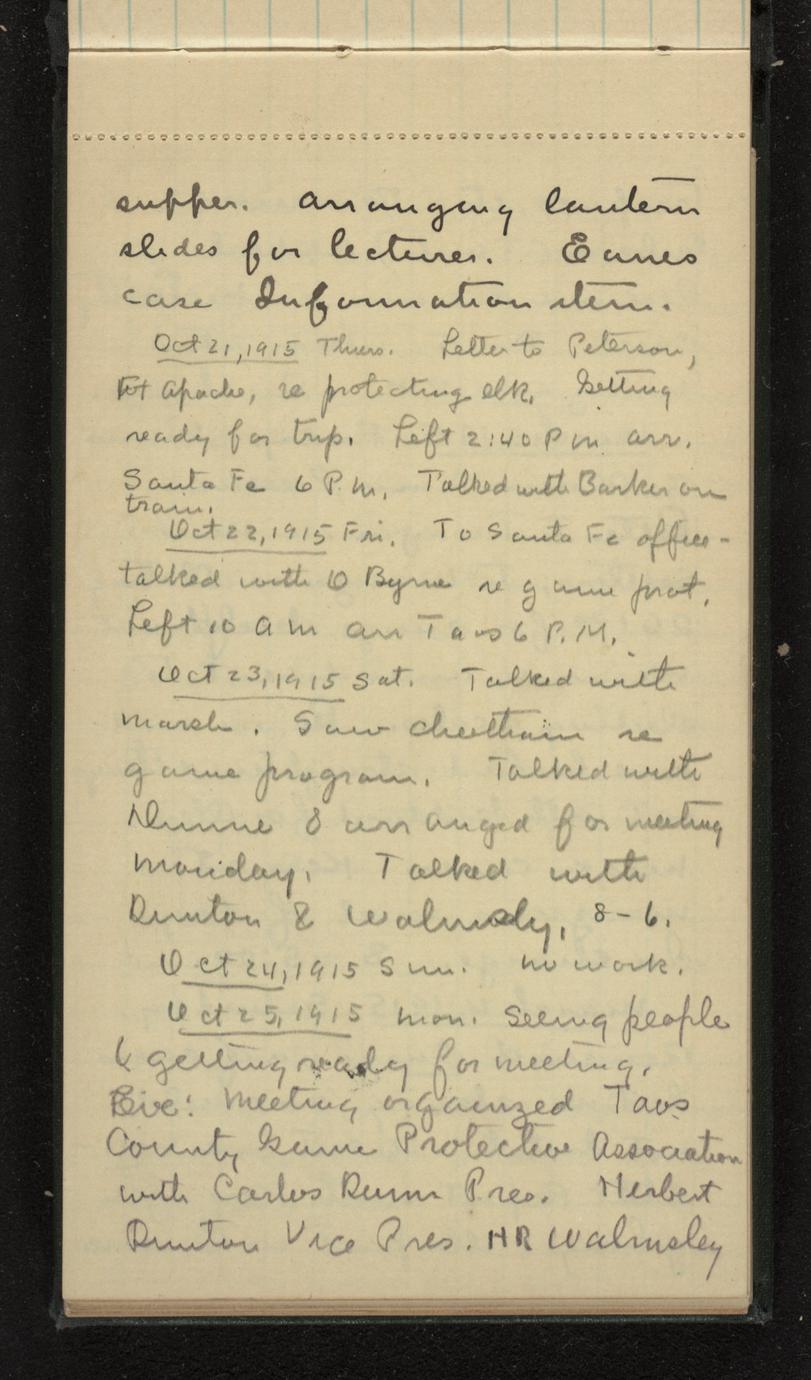 supper. Arranging lantern
slides for lectures. Eanes
case Information item.
Oct 21, 1915 Thurs. Letter to Peterson,
Ft Apache, re protecting elk. Getting
ready for trip. Left 2:40 P m arr.
Santa Fe 6 P.M. Talked with Barker on
train.
Oct 22, 1915 Fri. To Santa Fe office -
talked with O Byrne re game prot.
Left 10 A M arr Taos 6 P.M.
Oct 23, 1915 Sat. Talked with
Marsh. Saw Cheetham re
game program. Talked with
Dunne & arranged for meeting
Monday. Talked with
Dunton & Walmsly, 8-6.
Oct 24, 1915 Sun. No work.
Oct 25, 1915 Mon. Seeing people
& getting ready for meeting.
Eve: Meeting organized Taos
County Game Protective Association
with Carlos Dunn Pres. Herbert
Dunton Vice Pres. HR Walmsley